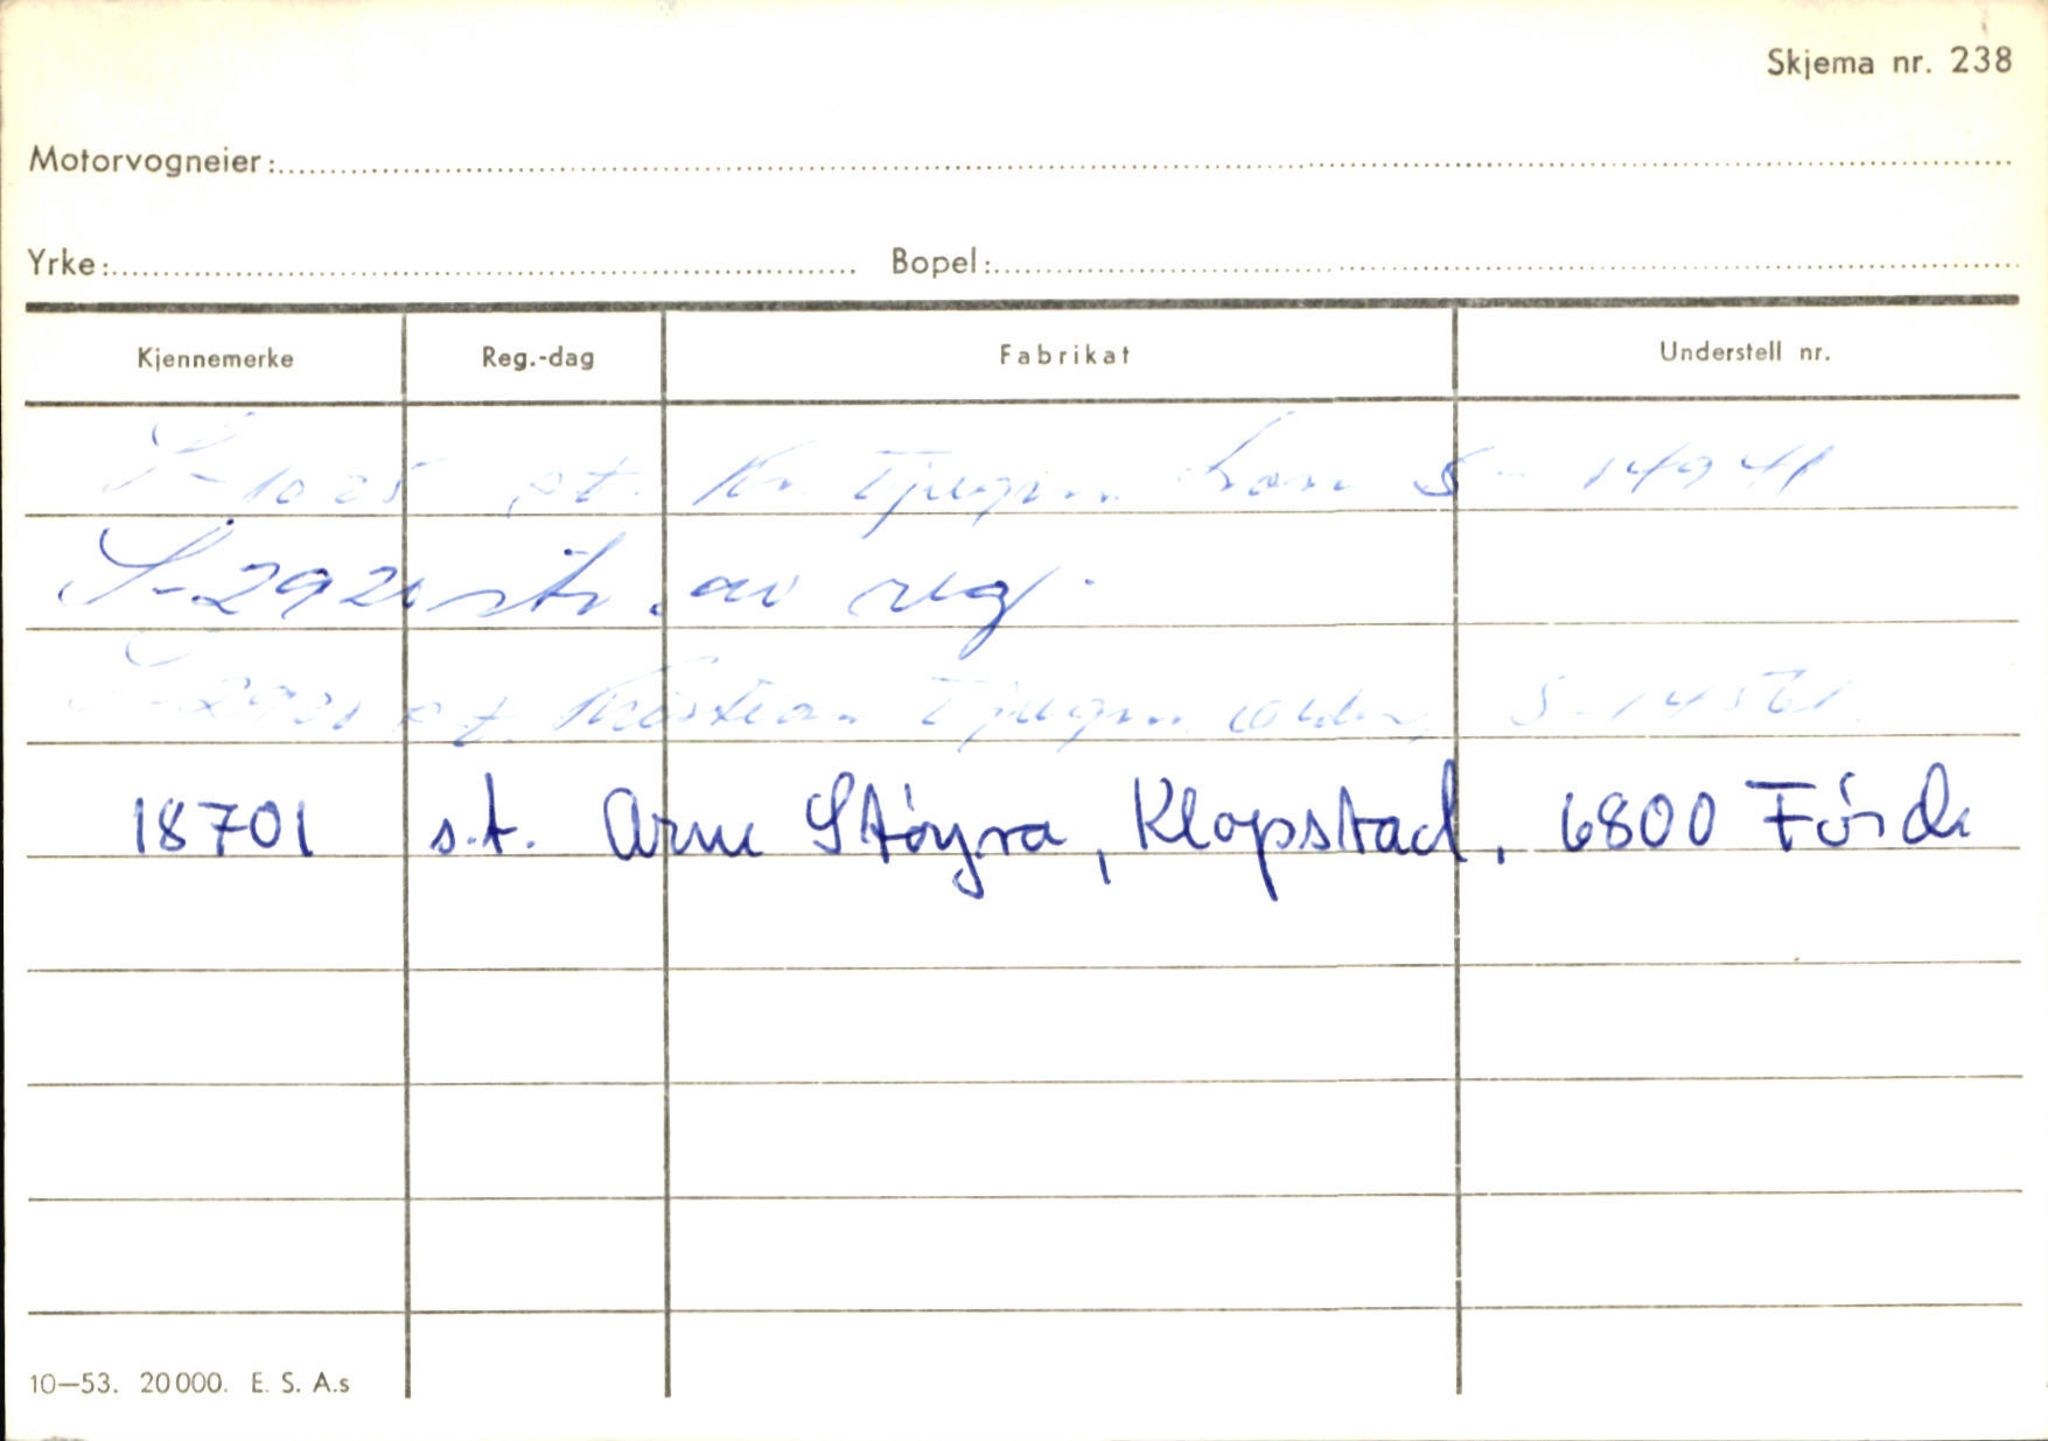 Skjema nr. 238
Motorvogneier:
Yrke: Bopel:
Kjennemerke Reg.-dag Fabrikat Understell nr.
S-1025 Kr. Tjugum S-14941
S-2921 av reg.
S-2921 Kristian Tjugum S-14561
18701 s.t. Arne Støyva, Klopstad, 6800 Førde
10—53. 20 000. E. S. A.s